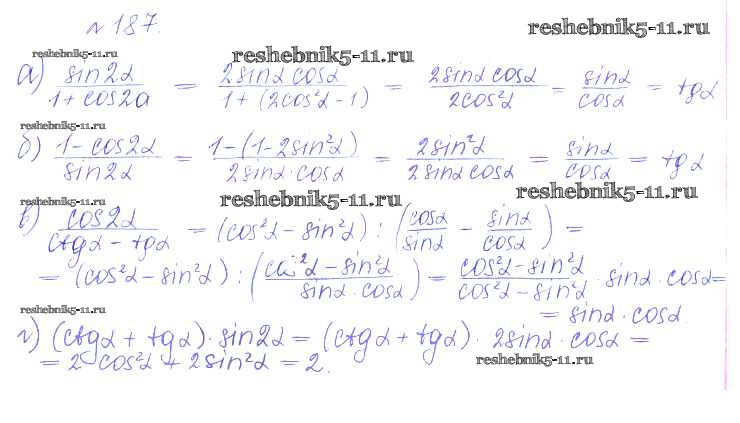 №187. reshebnik5-11.ru
reshebnik5-11.ru reshebnik5-11.ru reshebnik5-11.ru
а) sin2α/(1 + cos2α) = 2sinα cosα/(1 + (2cos²α - 1)) = 2sinα cosα/2cos²α = sinα/cosα = tgα
reshebnik5-11.ru
б) (1 - cos2α)/sin2α = (1 - (1 - 2sin²α))/(2sinα · cosα) = 2sin²α/(2sinα cosα) = sinα/cosα = tgα
reshebnik5-11.ru reshebnik5-11.ru reshebnik5-11.ru
в) cos2α/(ctgα - tgα) = (cos²α - sin²α) : (cosα/sinα - sinα/cosα) =
= (cos²α - sin²α) : ((cos²α - sin²α)/(sinα · cosα)) = (cos²α - sin²α)/(cos²α - sin²α) · sinα · cosα =
reshebnik5-11.ru = sinα · cosα.
г) (ctgα + tgα) · sin2α = (ctgα + tgα) · 2sinα · cosα =
= 2 cos²α + 2sin²α = 2. reshebnik5-11.ru